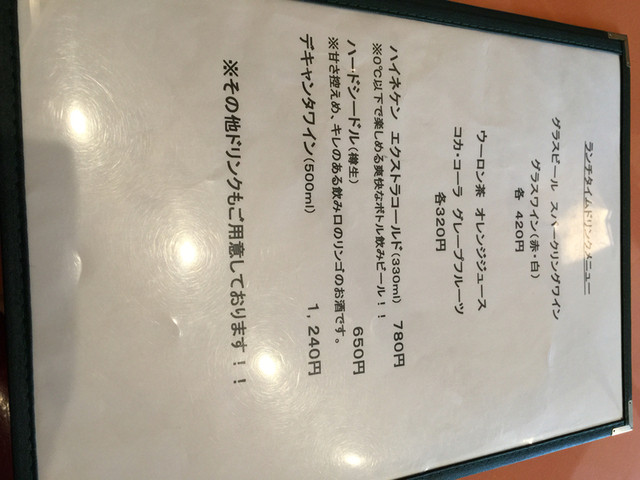 ランチタイムドリンクメニュー
グラスビール スパークリングワイン
グラスワイン(赤・白)
各 420円
ウーロン茶 オレンジジュース
コカ・コーラ グレープフルーツ
各320円
ハイネケン エクストラコールド(330ml) 780円
※0℃以下で楽しめる爽快なボトル飲みビール!!
ハードシードル(樽生) 650円
※甘さ控えめ、キレのある飲み口のリンゴのお酒です。
デキャンタワイン(500ml) 1,240円
※その他ドリンクもご用意しております!!